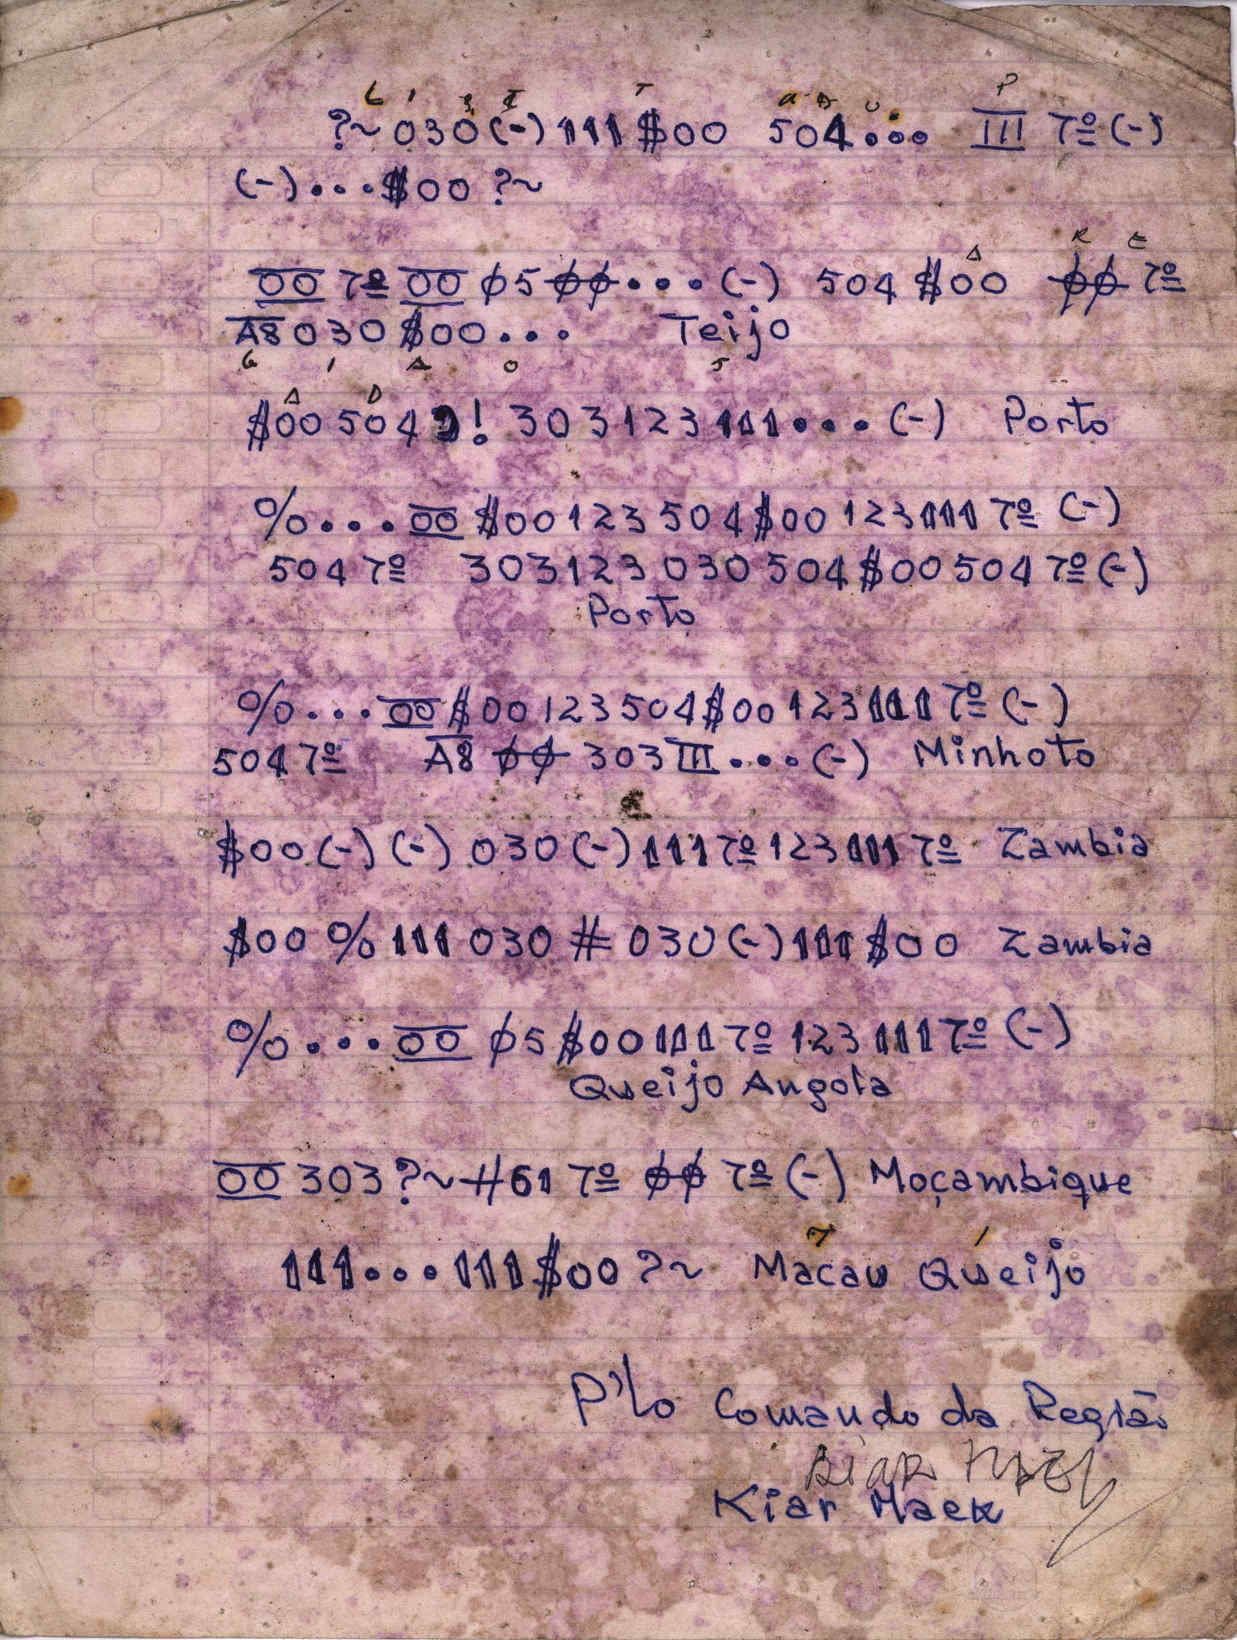 L I S T A D O P
?~ 030 (-) 111 $00 504... III 7º (-)
(-)...$00 ?~
A R E
00 7º 00 ϕ5 ϕϕ... (-) 504 $00 ϕϕ 7º
A8 030 $00... Teijo
G I A O S
A D
$00 504 2! 303 123 111... (-) Porto
%... 00 $00 123 504 $00 123 111 7º (-)
504 7º 303 123 030 504 $00 504 7º (-)
Porto
%... 00 $00 123 504 $00 123 111 7º (-)
504 7º A8 ϕϕ 303 III... (-) Minhoto
$00 (-) (-) 030 (-) 111 7º 123 111 7º Zambia
$00 % 111 030 # 030 (-) 111 $00 Zambia
%... 00 ϕ5 $00 111 7º 123 111 7º (-)
Queijo Angola
00 303 ?~ #61 7º ϕϕ 7º (-) Moçambique
111...111 $00 ?~ Macau Queijo
P'lo Comando da Região
Kiar Maek